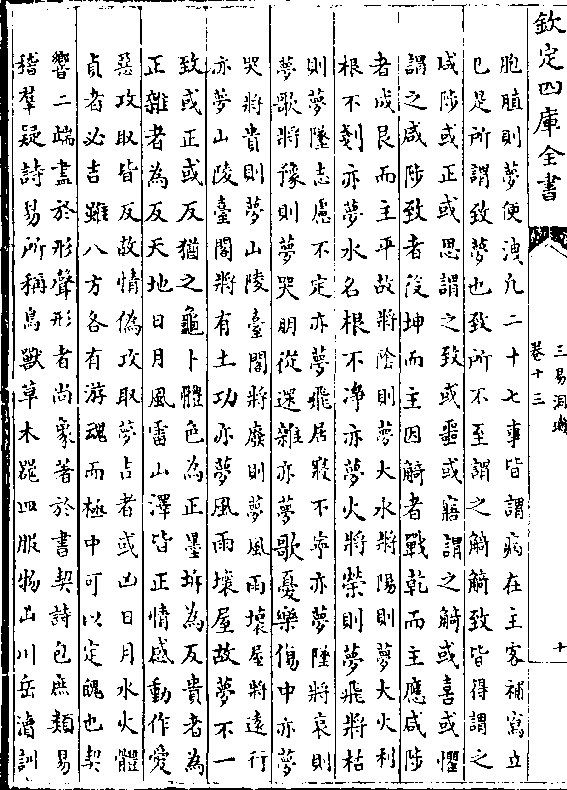 欽定四庫全書
三易洞璣
卷十三
十
胞䐈則夢便洩凡二十七事皆謂病在主客補寫立
已是所謂致夢也致所不至謂之觭觭致皆得謂之
咸陟或正或思謂之致或噩或寤謂之觭或喜或懼
謂之咸陟致者役坤而主因觭者戰乾而主應咸陟
者成艮而主平故將陰則夢大水將陽則夢大火利
根不剗亦夢水名根不淨亦夢火將榮則夢飛將枯
則夢墜志慮不定亦夢飛居寢不寧亦夢墜將哀則
夢歌將豫則夢哭朋從遝雜亦夢歌憂樂傷中亦夢
哭將貴則夢山陵臺閣將廢則夢風雨壞屋將遠行
亦夢山陵臺閣將有土功亦夢風雨壞屋故夢不一
致或正或反猶之龜卜體色為正墨坼為反貴者為
正雜者為反天地日月風雷山澤皆正情感動作愛
惡攻取皆反故情偽攻取夢占者或凶日月水火體
貞者必吉雖八方各有游魂而極中可以定醜也契
響二端盡於形聲形者尚象著於書契詩包庶類易
稽羣疑詩易所稱鳥獸草木器皿服物山川岳瀆訓